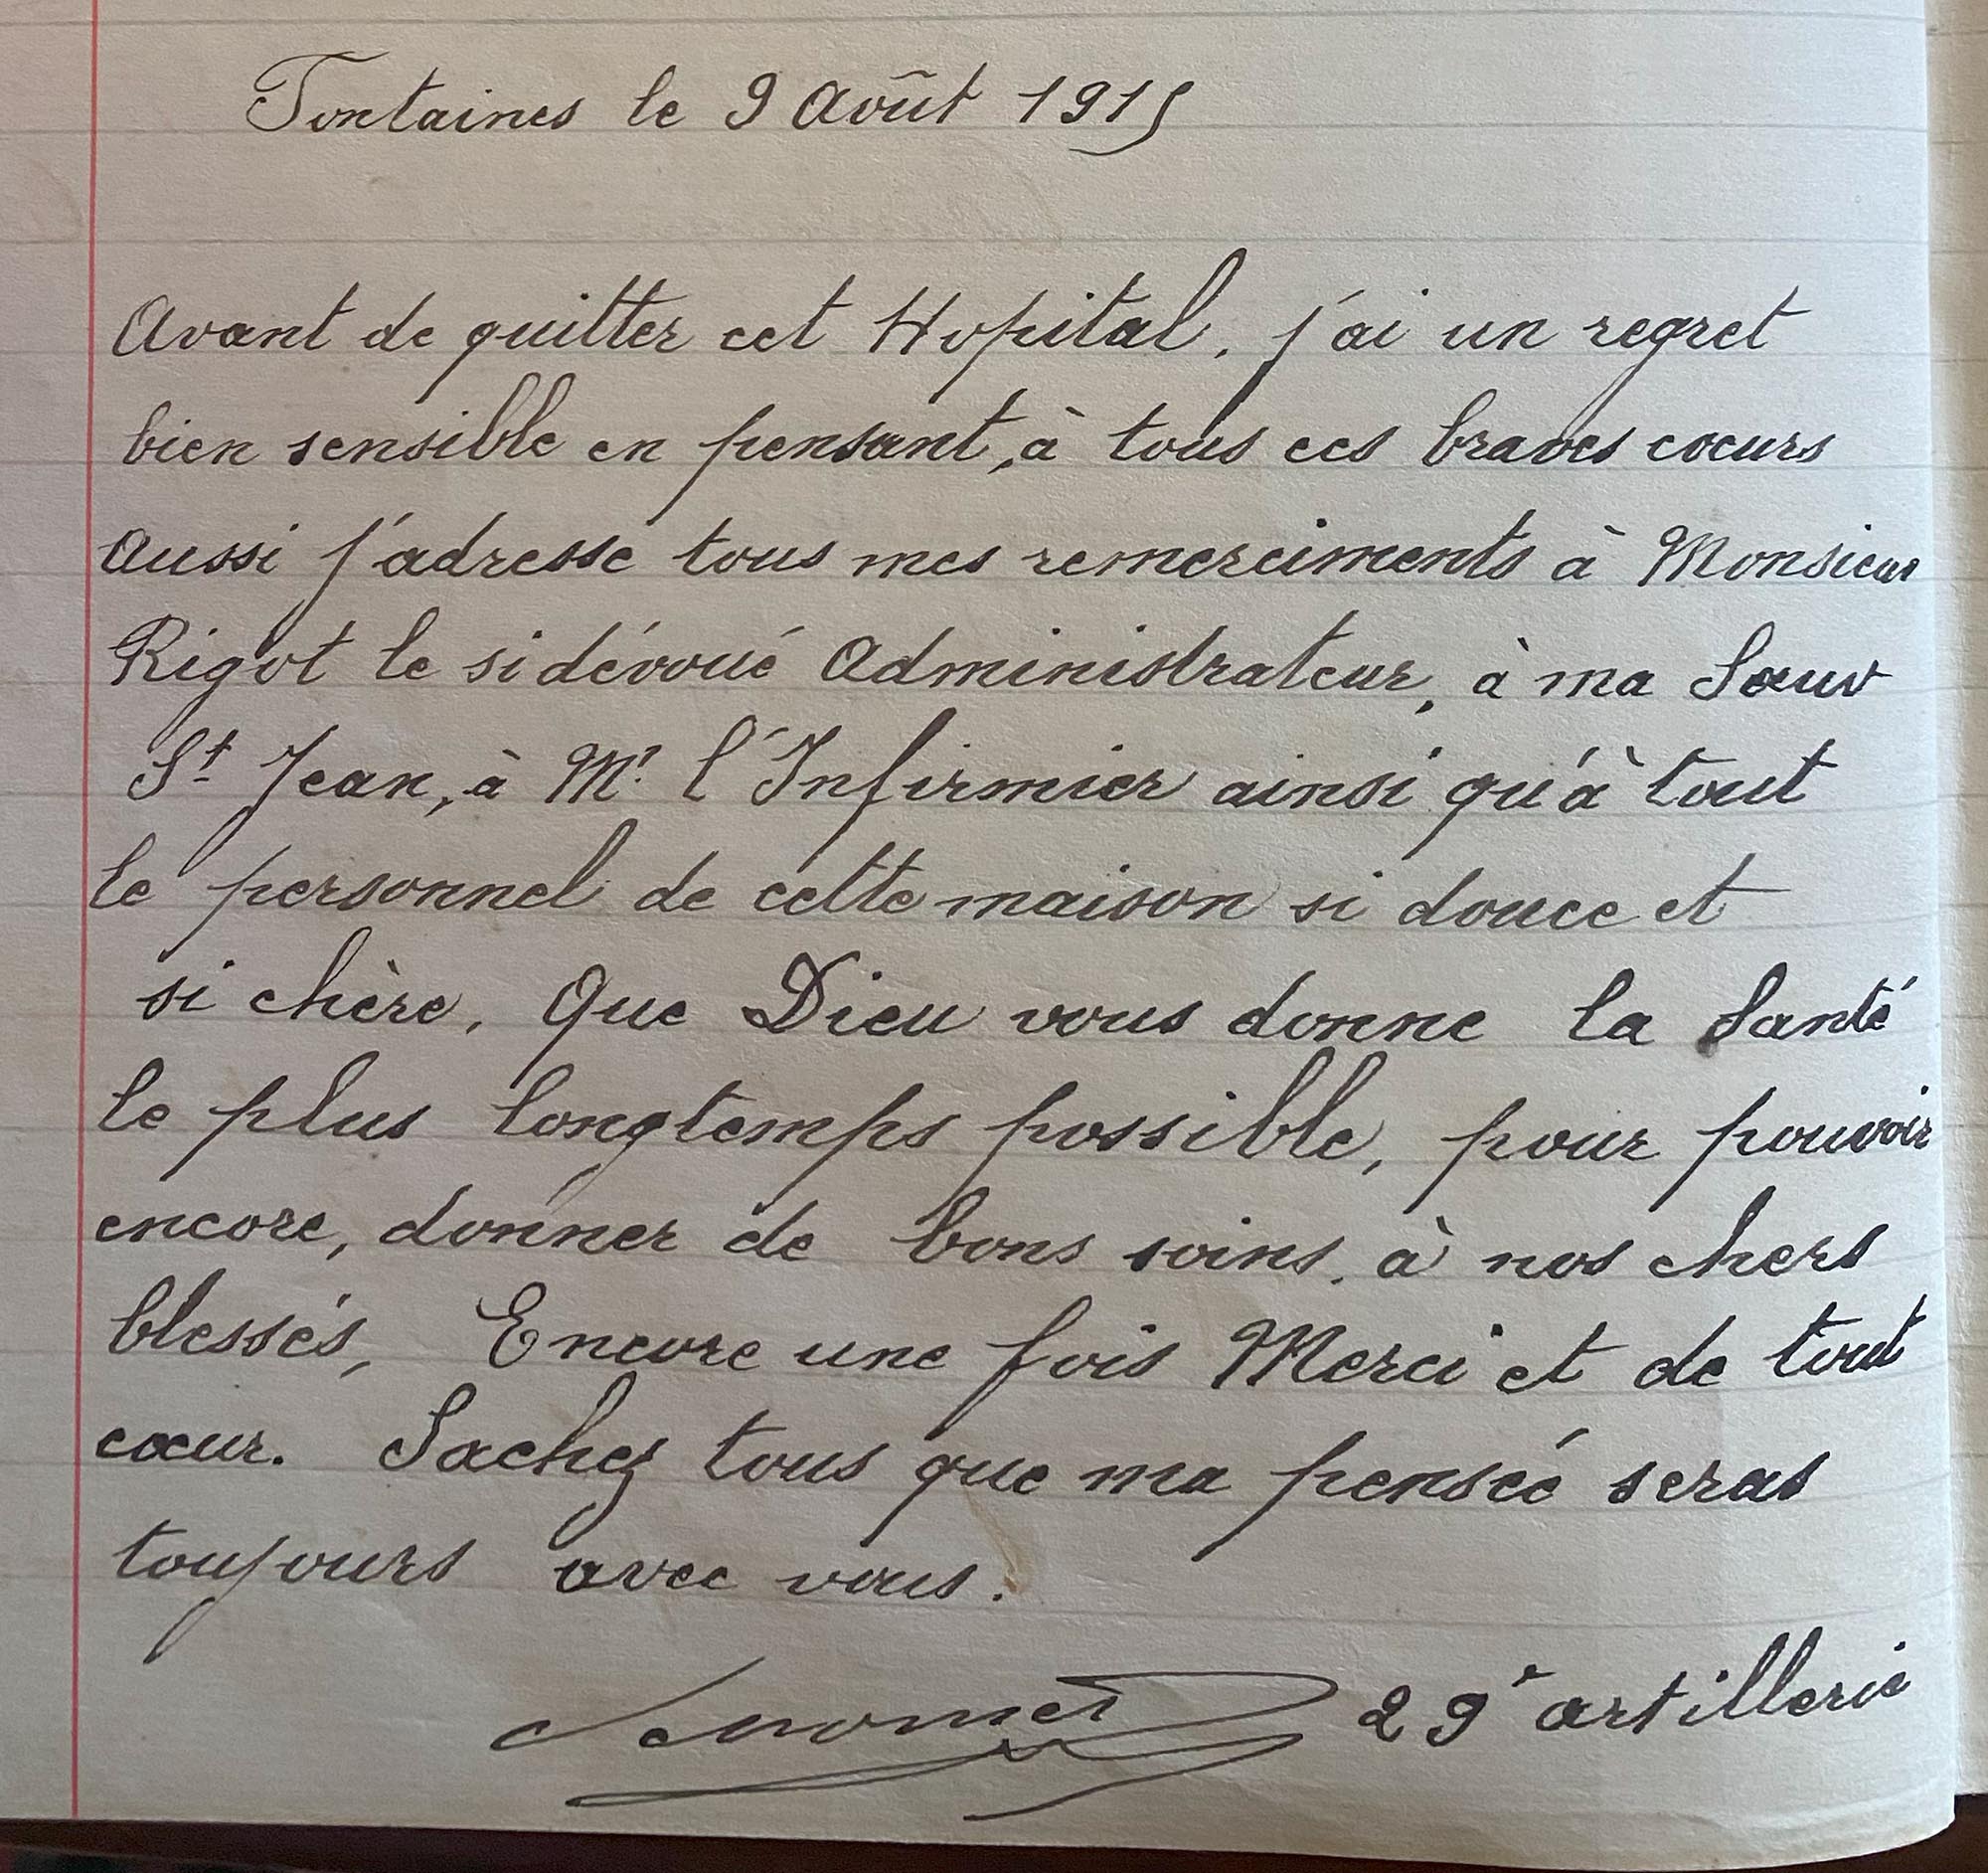 Fontaines le 9 Août 1915
Avant de quitter cet Hopital, j'ai un regret
bien sensible en pensant, à tous ces braves cœurs
Aussi j'adresse tous mes remerciments à Monsieur
Rigot le si dévoué Administrateur, à ma Sœur
St Jean, à Mr. l'Infirmier ainsi qu'à tout
le personnel de cette maison si douce et
si chère. Que Dieu vous donne la Santé
le plus longtemps possible, pour pouvoir
encore, donner de bons soins, à nos chers
blessés, Encore une fois Merci et de tout
cœur. Sachez tous que ma pensée seras
toujours avec vous.
29e artillerie